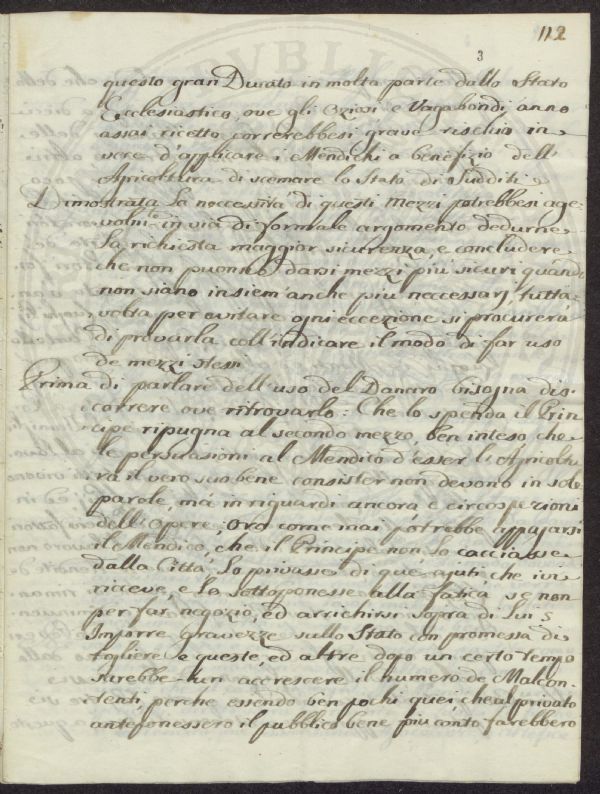 112
3
questo gran Ducato in molta parte dello Stato
Ecclesiastico, ove gli Oziosi e Vagabondi anno
assai ricetto correrebbesi grave rischio in
vece d'applicare i Mendichi a benefizio dell'
Agricoltura di scemare lo Stato di Sudditi
Dimostrata la neccessità di questi mezzi potrebbesi age-
volmte in via di formale argomento dedurne
la richiesta maggior sicurezza, e concludere
che non puonno darsi mezzi più sicuri quando
non siano insiem'anche più neccessarj, tutta-
volta per evitare ogni eccezione si procurerà
di provarla coll'indicare il modo di far uso
de mezzi stessi
Prima di parlare dell'uso del Danaro bisogna dis-
correre ove ritrovarlo: Che lo spenda il Prin-
cipe ripugna al secondo mezzo, ben inteso che
le persuasioni al Mendico d'esser l'Agricoltu-
ra il vero suo bene consister non devono in sole
parole, mà in riguardi ancora e circospezioni
dell'opere, oro come mai potrebbe appagarsi
il Mendico, che il Principe non lo cacciasse
dalla Città, lo privasse di què ajuti che ivi
riceve, e lo sottoponesse alla fatica se non
per far negozio, ed arrichirsi sopra di Lui
Imporre gravezze sullo Stato con promessa di
togliere e queste, ed altre dopo un certo tempo
sarebbe un accrescere il numero de Malcon-
tenti, perche essendo ben pochi quei, che al privato
anteponessero il pubblico bene più conto farebbero